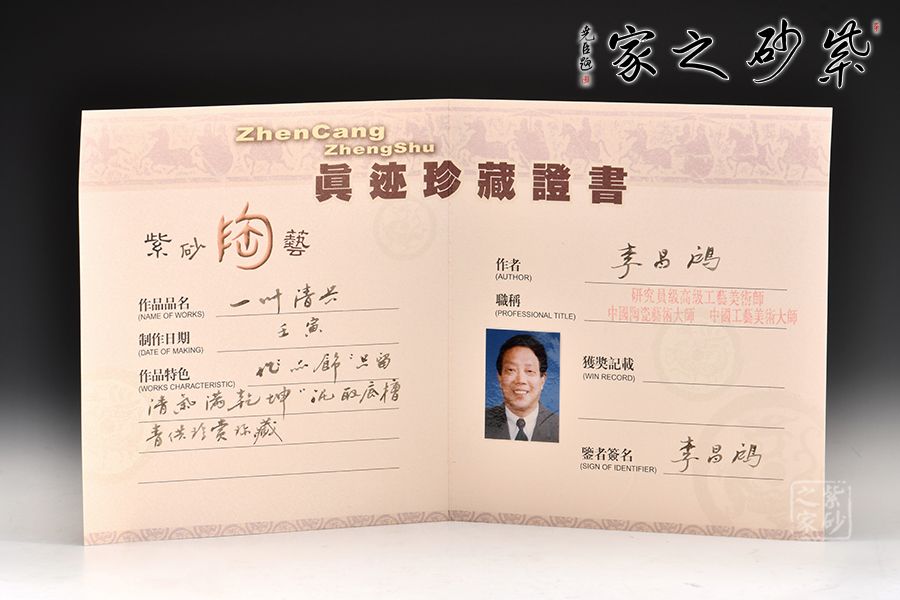 紫砂之家
堯臣題
ZhenCang
ZhengShu
眞迹珍藏證書
紫砂陶藝
作品品名
(NAME OF WORKS)
一叶清兴
制作日期
(DATE OF MAKING)
壬寅
作品特色
(WORKS CHARACTERISTIC)
飾"只留
清氣满乾坤"泥取底槽
青供珍賞珍藏
作者
(AUTHOR)
李昌鴻
職稱
(PROFESSIONAL TITLE)
研究員級高級工藝美術師
中國陶瓷藝術大師 中國工藝美術大師
獲獎記載
(WIN RECORD)
鑒者簽名
(SIGN OF IDENTIFIER)
李昌鴻
紫砂之家